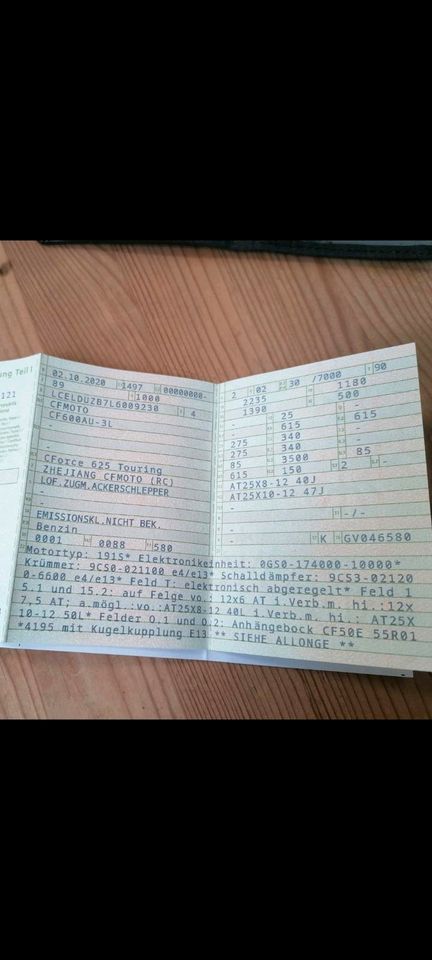 ng Teil I
121
02.10.2020 1497 00000000-
89 1000
LCELDUZB7L6009230 4
CFMOTO
CF600AU-3L
-
-
CForce 625 Touring
ZHEJIANG CFMOTO (RC)
LOF.ZUGM.ACKERSCHLEPPER
-
EMISSIONSKL.NICHT BEK.
Benzin
0001 0088 580
2 02 30 /7000 90
2235 1180
1390 500
- 25 -
- 615 615
275 340 -
275 340 -
85 3500 85
615 150 2 -
AT25X8-12 40J
AT25X10-12 47J
-
- -/-
- K GV046580
Motortyp: 191S* Elektronikeinheit: 0GS0-174000-10000*
Krümmer: 9CS0-021100 e4/e13* Schalldämpfer: 9CS3-02120
0-6600 e4/e13* Feld T: elektronisch abgeregelt* Feld 1
5.1 und 15.2: auf Felge vo.: 12x6 AT i.Verb.m. hi.:12x
7,5 AT; a.mögl.:vo.:AT25X8-12 40L i.Verb.m. hi.: AT25X
10-12 50L* Felder O.1 und O.2: Anhängebock CF50E 55R01
*4195 mit Kugelkupplung E13 ** SIEHE ALLONGE **